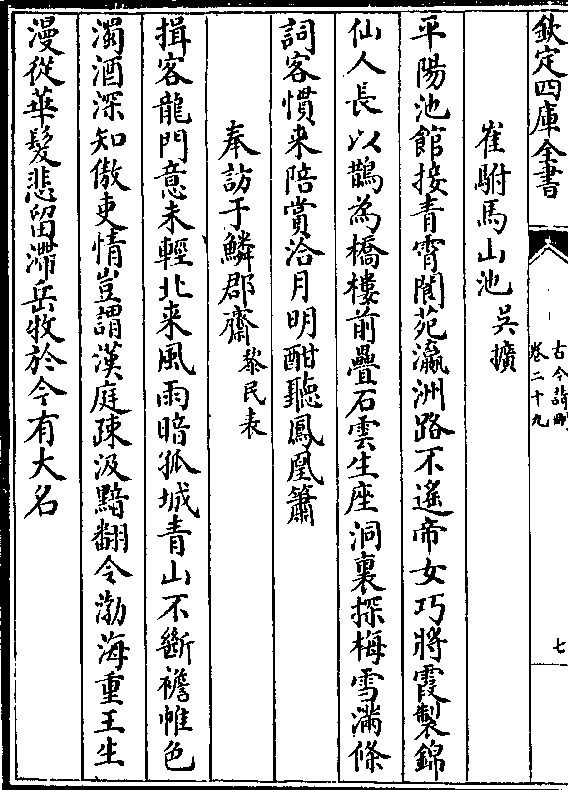 欽定四庫全書
古今詩刪
卷二十九
七
崔駙馬山池
吳擴
平陽池館接青霄閬苑瀛洲路不遙帝女巧將霞製錦
仙人長以鵲為橋樓前疊石雲生座洞裏探梅雪滿條
詞客慣来陪賞洽月明酣聽鳳凰簫
奉訪于鱗郡齋
黎民表
揖客龍門意未輕北来風雨暗孤城青山不斷襜帷色
濁酒深知傲吏情豈謂漢庭疎汲黯翻令渤海重王生
漫從華髮悲留滯岳牧於今有大名